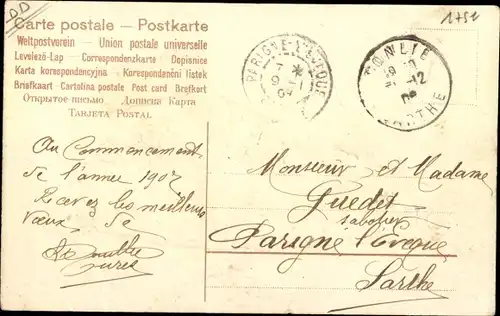 DD
1751
Carte postale – Postkarte
Weltpostverein – Union postale universelle
Levelező-Lap – Correspondenzkarte – Dopisnice
Karta korespondencyjna – Korespondenční listek
Briefkaart - Cartolina postale - Post card - Brefkort
Открытое письмо – Дописна Карта
TARJETA POSTAL
PARIGNÉ-L'ÉVÊQUE
CONLIE
SARTHE
Au Commencement
de l'année 1907
Recevez les meilleurs
vœux de
Monsieur et Madame
Guedet
sabotier
Parigné l'Evêque
Sarthe